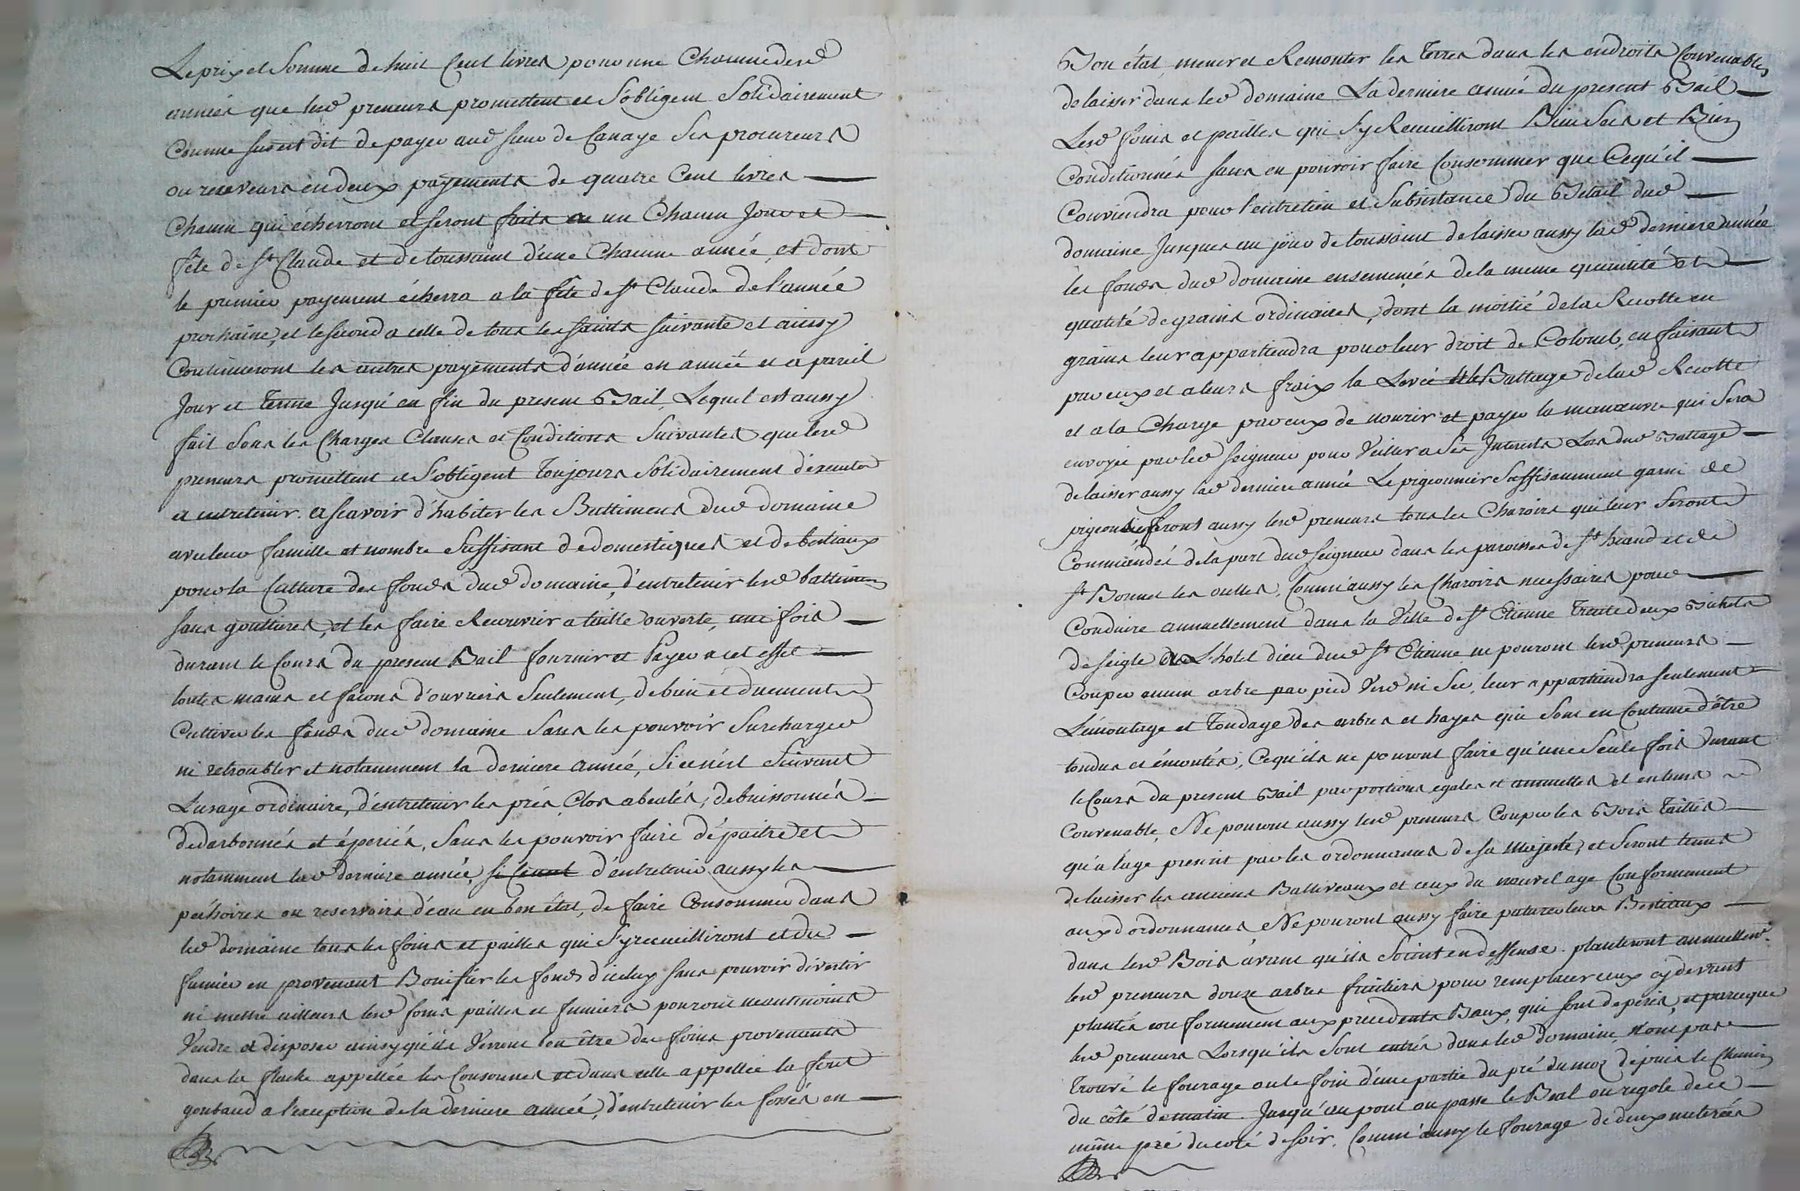 Le prix et Somme de huit Cent livres pour une Chacune desd
années que lesd preneurs promettent et S'obligent Solidairement
Comme susest dit de payer aud sieur de Canaye Ses procureurs
ou receveurs en deux payements de quatre Cent livres
Chacun qui echerront et seront faits en un Chacun Jour et
fête de St Claude et de toussaint d'une Chacune année, et dont
le premier payement écherra a la fête de St Claude de l'année
prochaine, et le second a celle de tous les saints suivante et ainsy
Continueront les autres payements d'année en année et a pareil
Jour et terme Jusqu'en fin du present Bail, Lequel est aussy
fait Sous les Charges Clauses et Conditions Suivantes que lesd
preneurs promettent et S'obligent toujours Solidairement d'executer
et entretenir. a scavoir d'habiter les Battiments dud domaine
avec leur famille et nombre Suffisant de domestiques et de bestiaux
pour la Culture des fonds dud domaine, d'entretenir lesd battimens
sans gouttures, et les faire Recouvrir a tuille ouverte, une fois
durant le Cours du present Bail fournir et Payer a cet effet
toutes mains et façons d'ouvriers Seulement, de bien et duement
Cultiver les fonds dud domaine Sans les pouvoir Surcharger
ni retroubler et notamment la derniere année, Si ce n'est Suivant
L'usage ordinaire, d'entretenir les prés, Clos abealés, debuissonnés
dedarbonnés et épeciés, Sans les pouvoir faire dépaitre et
notamment lad derniere année, d'entretenir aussy les
pechoires ou reservoirs d'eau en bon état, de faire Consommer dans
led domaine tous les foins et pailles qui S'y recueilliront et du
fumier en provenant Bonifier les fonds d'icelux sans pouvoir divertir
ni mettre ailleurs lesd foins pailles et fumiers pouront neantmoins
Vendre et disposer ainsy qu'ils Verront bon être des foins provenants
dans la flache appellée les Consonnes et dans celle appellée la font
goubaud a l'exception de la derniere année, d'entretenir les fossés en
Bon état, mener et Remonter les terres dans les endroits Convenables
de laisser dans led domaine La derniere année du present Bail
Lesd foins et pailles qui S'y Recueilliront Bien Secs et Bien
Conditionnés sans en pouvoir faire Consommer que Ce qu'il
Conviendra pour l'entretien et Subsistance du Bétail dud
domaine Jusques au jour de toussaint de laisser aussy lad derniere année
les fonds dud domaine ensemencés de la meme quantité et
qualité de grains ordinaires, dont la moitié de la Recolte en
grains leur appartiendra pour leur droit de Colons, en faisant
par eux et a leurs fraix la Levée et le Battage de lad Recolte
et a la Charge par eux de nourir et payer la manœuvre qui Sera
envoyée par led Seigneur pour Veiller a Ses Interets Lors dud Battage
de laisser aussy lad derniere année Le pigeonnier Suffisamment garni de
pigeons feront aussy lesd preneurs tous les Charois qui leur Seront
Commandés de la part dud Seigneur dans les paroisses de St heand et de
St Bonnet les oulles, Comm'aussy les Charois necessaires pour
Conduire annuellement dans la Ville de St Etienne trente deux Bichets
de seigle a L'hotel dieu dud St Etienne ne pouront lesd preneurs
Couper aucun arbre par pied Verd ni Sec, leur appartiendra seulement
L'emontage et tondage des arbres et hayes qui Sont en Coutume d'être
tondus et émontés, Ce qu'ils ne pouront faire qu'une Seule fois durant
le Cours du present Bail par portions egales et annuelles et en tems
Convenable, Ne pouront aussy lesd preneurs Couper les Bois taillis
qu'a l'age prescrit par les ordonnances de sa majesté, et Seront tenus
de laisser les anciens Balliveaux et ceux du nouvel age Conformement
auxd ordonnances Ne pouront aussy faire paturer leurs Bestiaux
dans lesd Bois avant qu'ils Soient en deffense. planteront annuellemt
lesd preneurs douze arbres fruitiers pour remplacer ceux cy devant
plantés conformement aux precedents Baux, qui sont deperis, et parceque
lesd preneurs Lorsqu'ils Sont entrés dans led domaine n'ont pas
trouvé le fourage ou le foin d'une partie du pré du moz depuis le Chemin
du côté de matin Jusqu'au pont ou passe le Beal ou rigole de ce
même pré du coté de soir. Comm'aussy le fourage de deux meterées